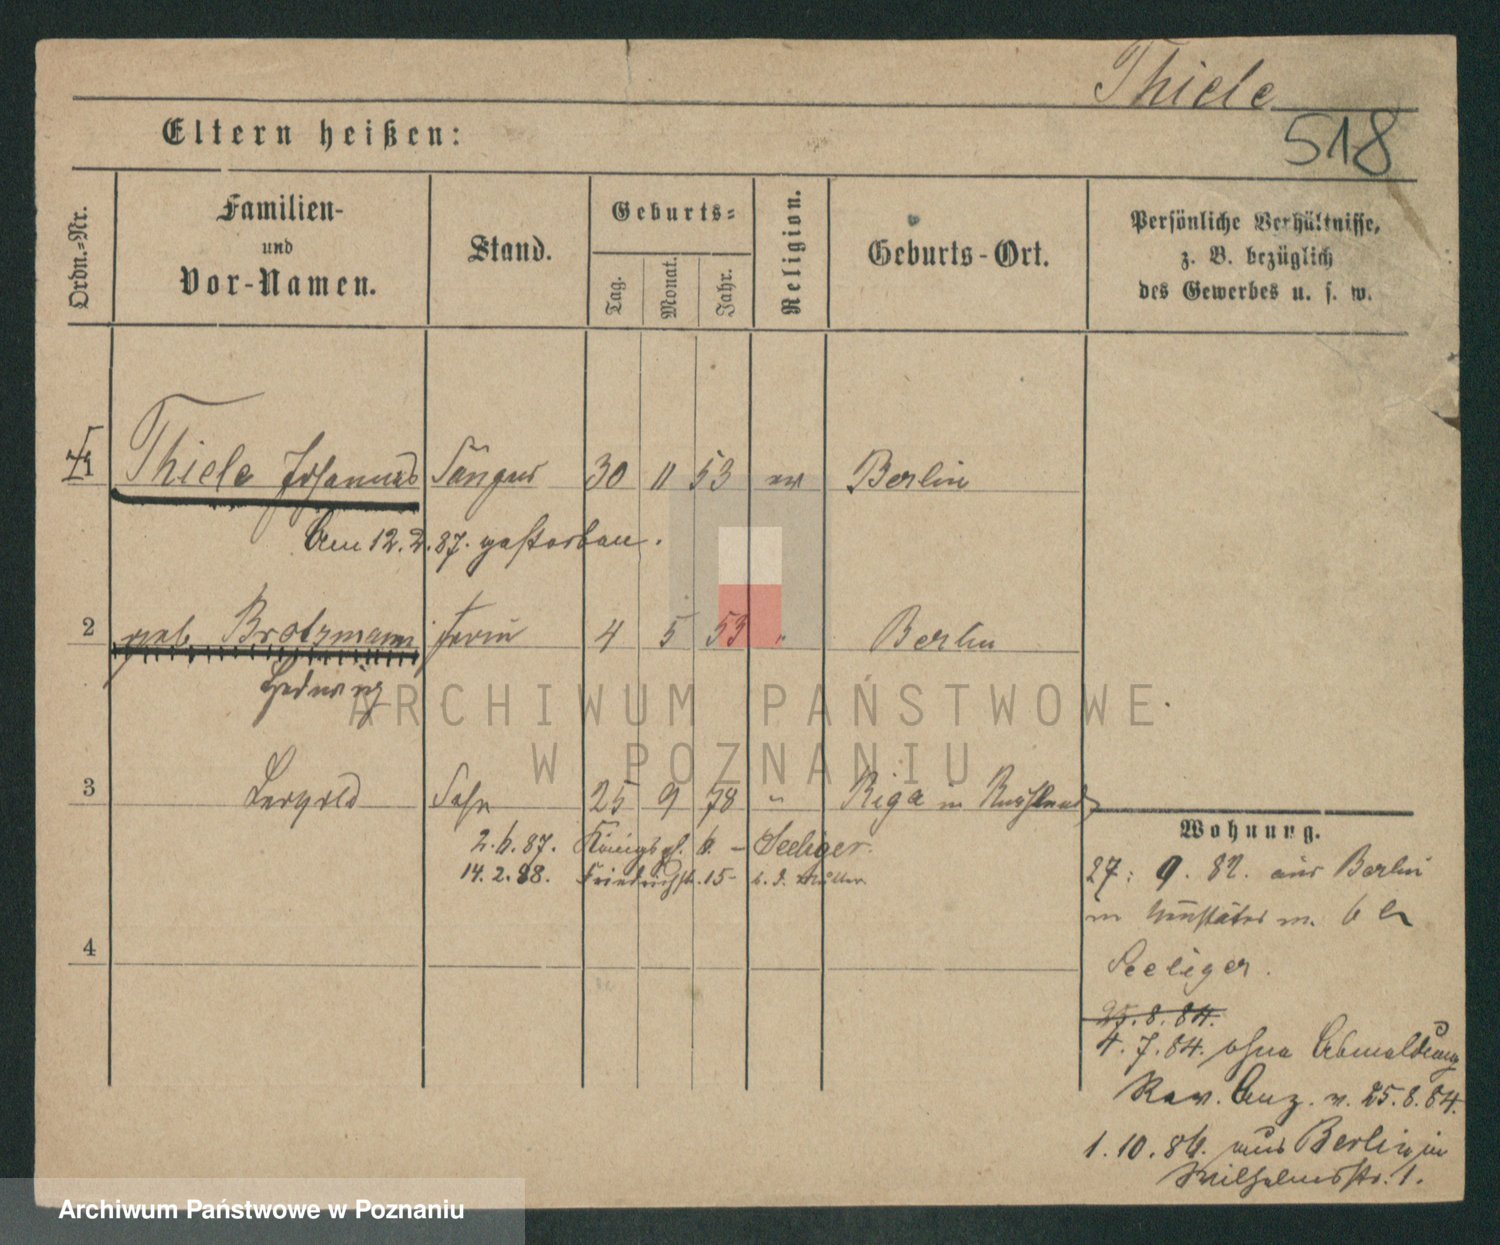 Thiele
518
Eltern heißen:
Ordn.=Nr.
Familien-
und
Vor-Namen.
Stand.
Geburts=
Tag.
Monat.
Jahr.
Religion.
Geburts-Ort.
Persönliche Verhältnisse,
z. B. bezüglich
des Gewerbes u. s. w.
1 Thiele Johannes Sänger 30 11 53 ev Berlin
Am 12.2.87. gestorben.
2 geb. Brotzmann Frau 4 5 53 " Berlin
Hedwig
3 Leopold Sohn 25 9 78 " Riga in Russland
2.6.87. Königspl. 6. - Seeliger.
14.2.88. Friedrichstr. 15- b. d. Müller
4
Wohnung.
27. 9. 82. aus Berlin
in 6
Seeliger.
25.8.84.
4.7.84. ohne Abmeldung
Rev. Anz. v. 25.8.84.
1.10.86. aus Berlin in
Wilhelmsstr. 1.
ARCHIWUM PAŃSTWOWE
W POZNANIU
Archiwum Państwowe w Poznaniu